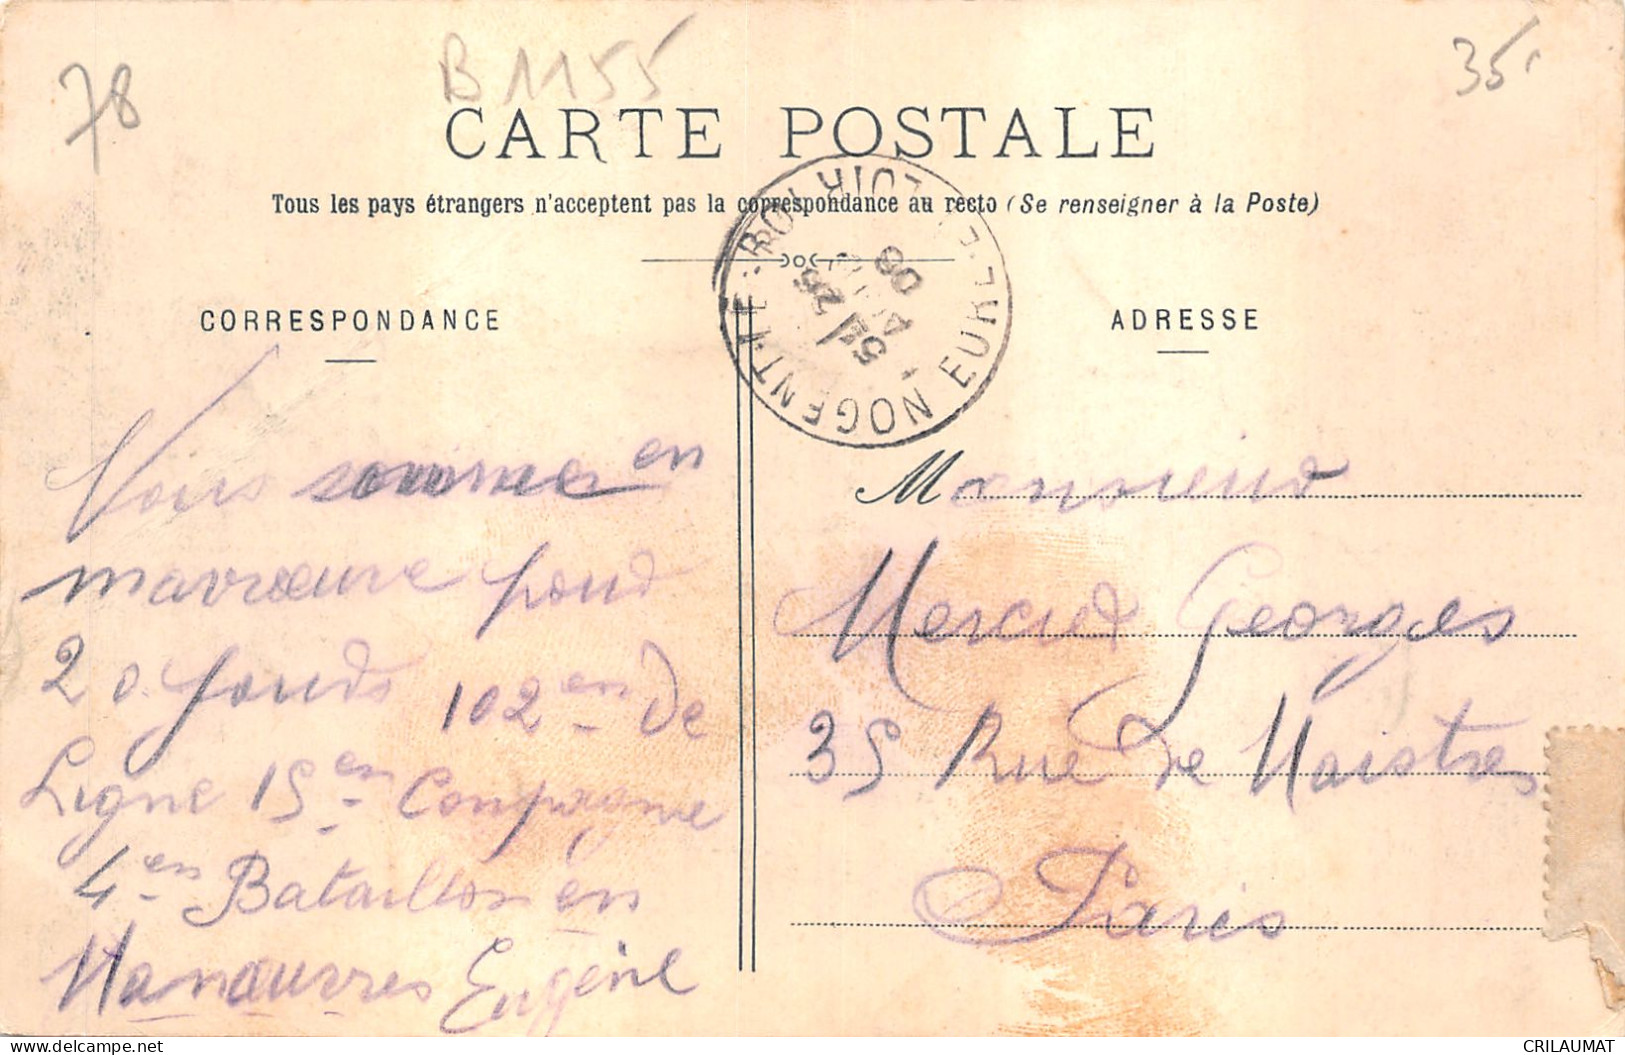 78
B 1155
35
CARTE POSTALE
Tous les pays étrangers n'acceptent pas la correspondance au recto (Se renseigner à la Poste)
NOGENT-LE-ROI EURE-&-LOIR
5 25
4
08
CORRESPONDANCE
ADRESSE
Nous sommes en
mavrœuve pour
20 jours 102en de
Ligne 15en Compagnie
4en Bataillon en
Manœuvres Eugène
Monsieur
Georges
35 Rue de Maistres
Paris
CRILAUMAT